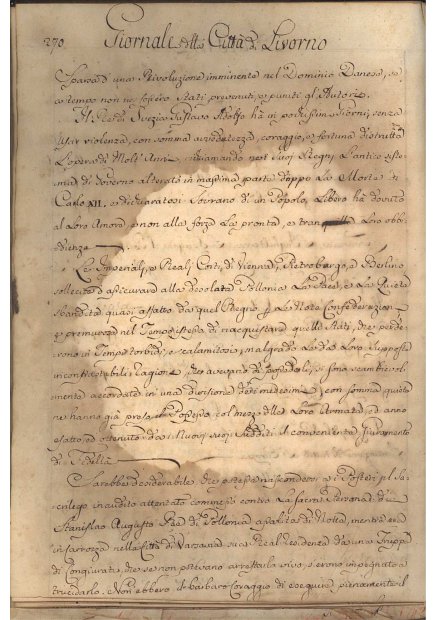 270. Giornale della Città di Livorno
Sparsa d'una Rivoluzione imminente nel Dominio Danese, se
a tempo non ne fossero stati prevenuti, e puniti gl'Autori.
Il Rè di Svezia Gustavo Adolfo hà in pochissimi Giorni, senza
usar violenza, con somma avvedutezza, coraggio, e fortuna distrutta
l'opera di Molt'Anni, richiamando ne' Suoi Regni l'antico siste-
ma di Governo alterato in massima parte doppo la Morte di
Carlo XII. e dichiaratosi Sovrano di un Popolo Libero hà dovuto
al Loro Amore, e non alla forza La pronta, e tranquilla Loro obbe-
dienza
Le Imperiali, e Reali Corti di Vienna, Pietroburgo, e Berlino
sollecite d'assicurare alla desolata Pollonia La Pace, e La Quiete
sbandita quasi affatto da quel Regno p. Le Note Confederazioni
e premurose nel Tempo stesso di riacquistare quelli Stati, che perde-
rono in Tempi torbidi, e calamitosi, malgrado Le Loro supposte
incontrastabili ragioni, che avevano di possederli, si sono scambievol-
mente accordate in una divisione dei medesimi, e con somma quiete
ne hanno già preso il Possesso col mezzo delle Loro Armate, ed anno
esatto, ed ottenuto da i Nuovi suoi Sudditi il conveniente Giuramento
di Fedeltà.
Sarebbe desiderabile che potesse nascondersi a i Posteri il Sa-
crilego inaudito attentato commesso contro La Sacra Persona di
Stanislao Augusto Rè di Pollonia assalito di Notte, mentre era
in Carrozza nella Città di Varsavia sua Real Residenza da una Truppa
di Congiurati, che se non potevano arrestarlo vivo, s'erono impegnati a
trucidarlo. Non ebbero il barbaro Coraggio di eseguire pienamente il